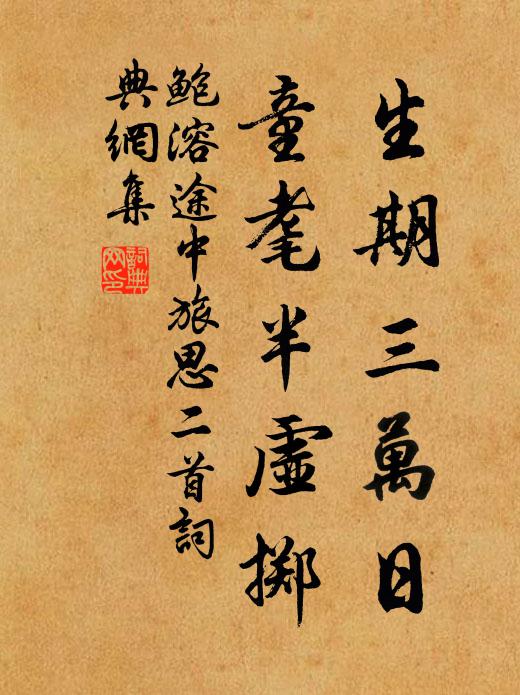 生期三萬日
童耄半虛擲
鮑溶途中旅思二首詞
典網集
詞典
网印